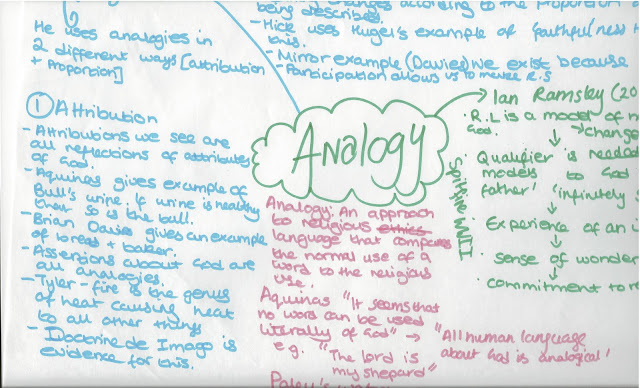 He uses analogies in
2 different ways [attribution
+ Proportion]
① Attribution
- Attributions we see are
all reflections of attributes
of God.
- Aquinas gives example of
Bull's urine. If urine is healthy
then so is the bull.
- Brian Davies gives an example
of bread + baker.
- Assertions about God are
all analogies.
- Tyler - fire is the genus
of heat causing heat
to all other things
- Doctrine de Imago is
evidence for this.
according to the Proportion
being described.
- Hick uses Hugel's example of faithfulness
this.
- Mirror example (Davies) we exist because
- Participation allows us to
Analogy
Analogy: An approach
to religious ethics
language that compares
the normal use of a
word to the religious
use.
Aquinas "It seems that
no word can be used
literally of God" → "All human language
about God is analogical'
e.g. "The lord is
my shepard"
Ian Ramsley (20
· R.L is a model of
God. → change
· Qualifier is needed
models to God
father' 'infinitely
· Experience of an
· sense of wonder
· commitment to